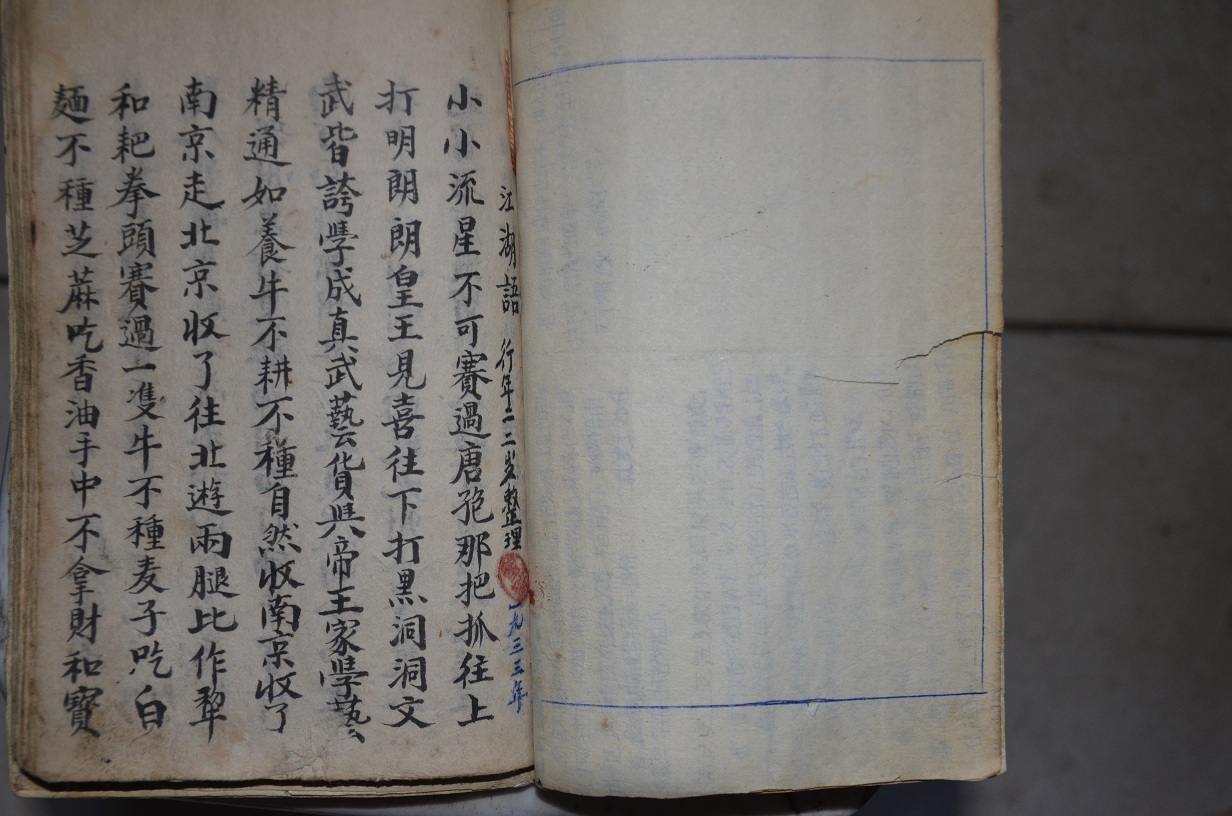 江湖語 行年二二岁整理 一九三三年
小小流星不可賽過唐孢那把抓往上
打明朗朗皇王見喜往下打黑洞洞文
武皆誇學成真武藝貨與帝王家學藝
精通如養牛不耕不種自然收南京收了
南京走北京收了往北遊兩腿比作犂
和耙拳頭賽過一隻牛不種麦子吃白
麵不種芝蔴吃香油手中不拿財和寶